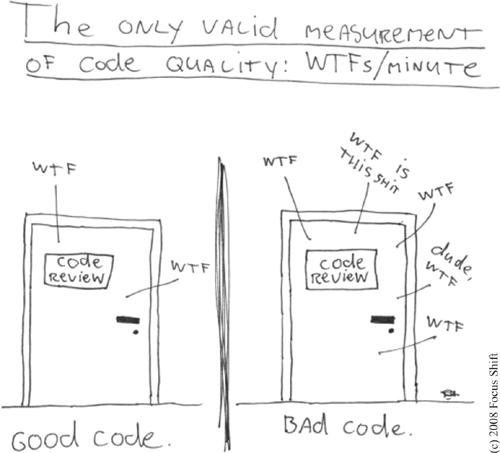 The ONLY VALID MEASUREMENT
OF Code QUALITY: WTFs/MINUTE
WTF
code
REVIEW
WTF
GOOD code.
WTF
WTF is
THIS SHIT
WTF
code
REVIEW
dude,
WTF
WTF
BAD code.
(c) 2008 Focus Shift